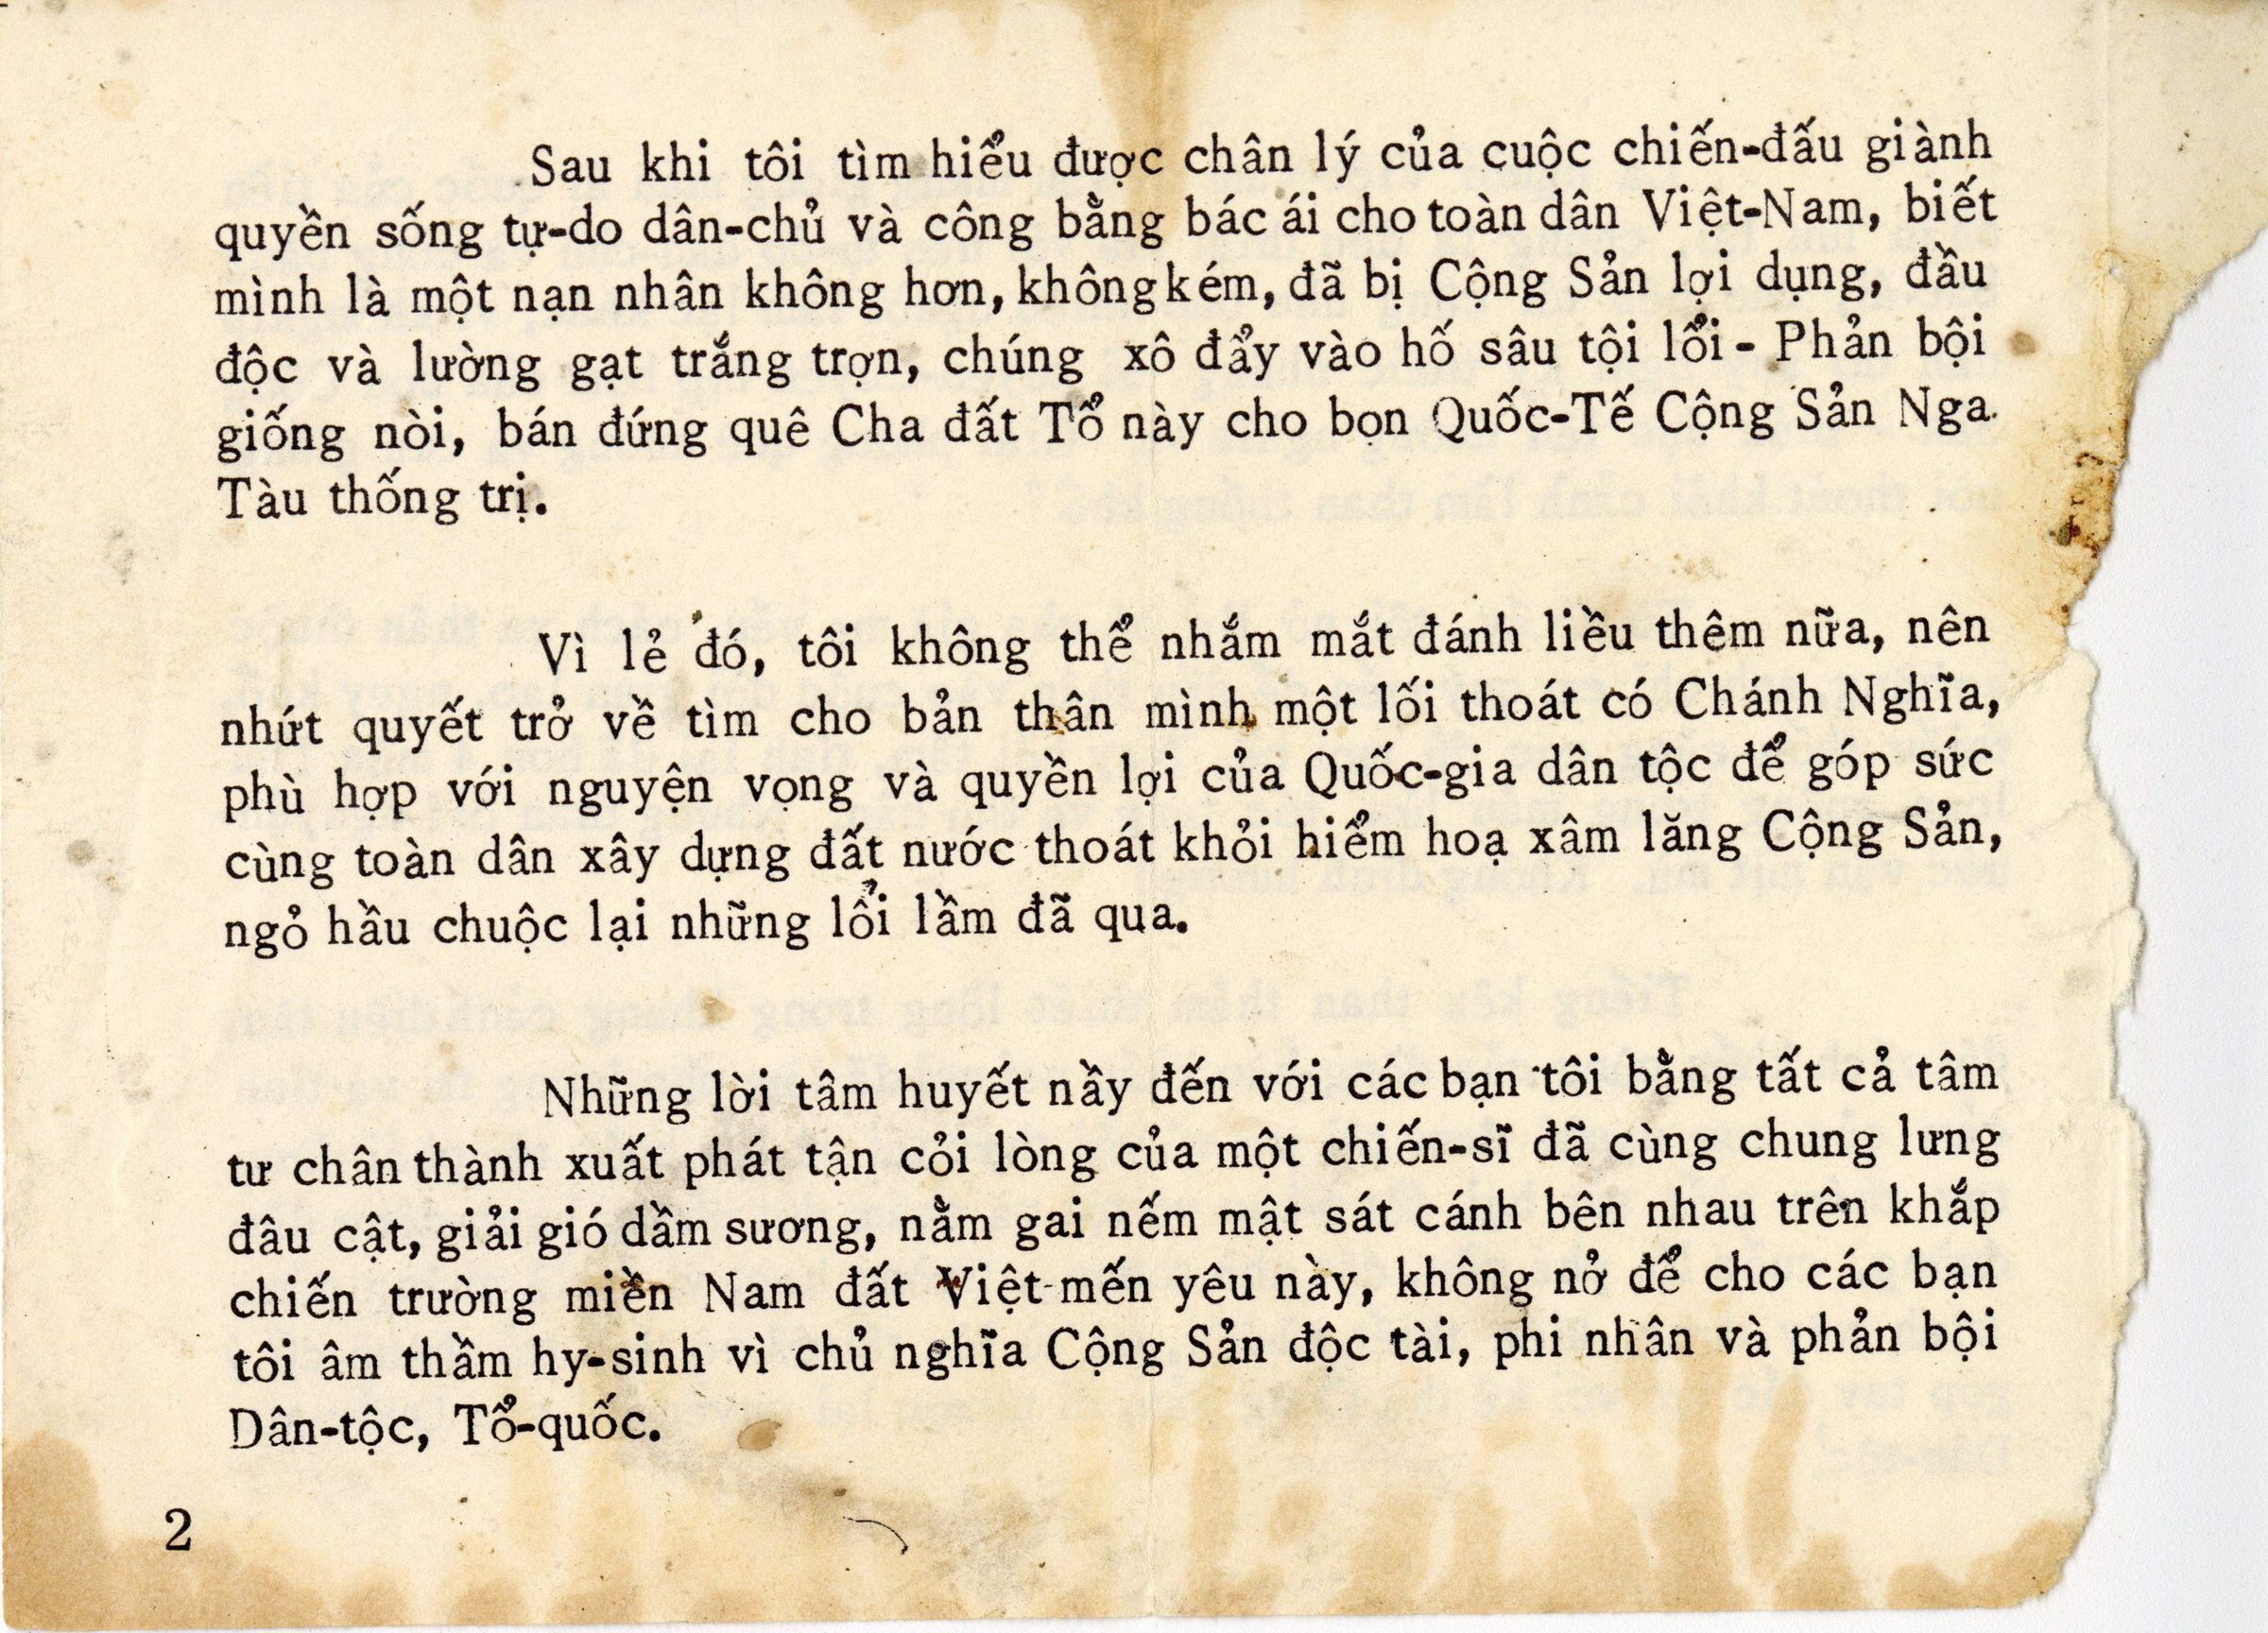 Sau khi tôi tìm hiểu được chân lý của cuộc chiến-đấu giành
quyền sống tự-do dân-chủ và công bằng bác ái cho toàn dân Việt-Nam, biết
mình là một nạn nhân không hơn, không kém, đã bị Cộng Sản lợi dụng, đầu
độc và lường gạt trắng trợn, chúng xô đẩy vào hố sâu tội lổi - Phản bội
giống nòi, bán đứng quê Cha đất Tổ này cho bọn Quốc-Tế Cộng Sản Nga
Tàu thống trị.
Vì lẻ đó, tôi không thể nhắm mắt đánh liều thêm nữa, nên
nhứt quyết trở về tìm cho bản thân mình một lối thoát có Chánh Nghĩa,
phù hợp với nguyện vọng và quyền lợi của Quốc-gia dân tộc để góp sức
cùng toàn dân xây dựng đất nước thoát khỏi hiểm hoạ xâm lăng Cộng Sản,
ngỏ hầu chuộc lại những lổi lầm đã qua.
Những lời tâm huyết nầy đến với các bạn tôi bằng tất cả tâm
tư chân thành xuất phát tận cỏi lòng của một chiến-sĩ đã cùng chung lưng
đâu cật, giải gió dầm sương, nằm gai nếm mật sát cánh bên nhau trên khắp
chiến trường miền Nam đất Việt mến yêu này, không nở để cho các bạn
tôi âm thầm hy-sinh vì chủ nghĩa Cộng Sản độc tài, phi nhân và phản bội
Dân-tộc, Tổ-quốc.
2